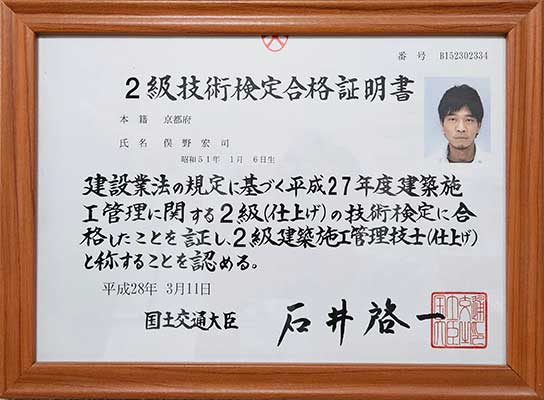 番号 B152302334
2級技術検定合格証明書
本籍 京都府
氏名 俣野宏司
昭和51年 1月 6日生
建設業法の規定に基づく平成27年度建築施
工管理に関する2級(仕上げ)の技術検定に合
格したことを証し、2級建築施工管理技士(仕上げ)
と称することを認める。
平成28年 3月11日
国土交通大臣 石井啓一